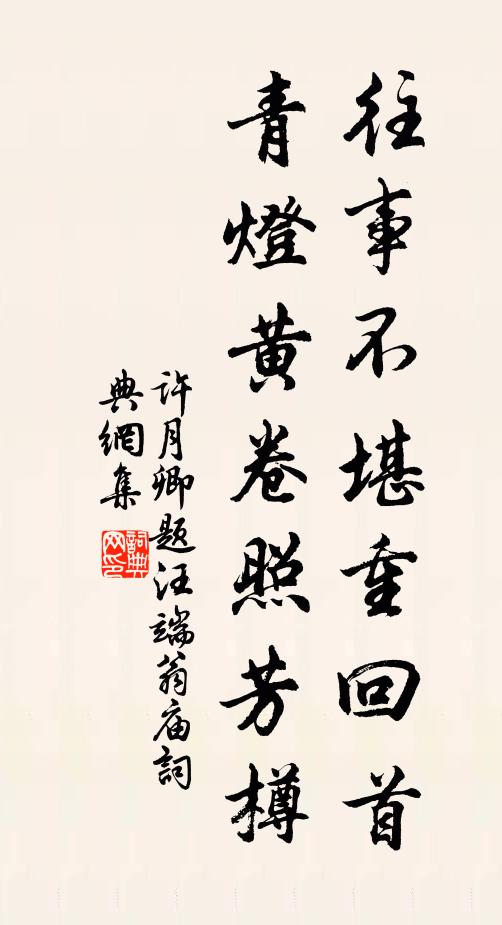 往事不堪重回首
青燈黄卷照芳樽
許月卿題汪端翁庙詞
典網集
詞典
网印